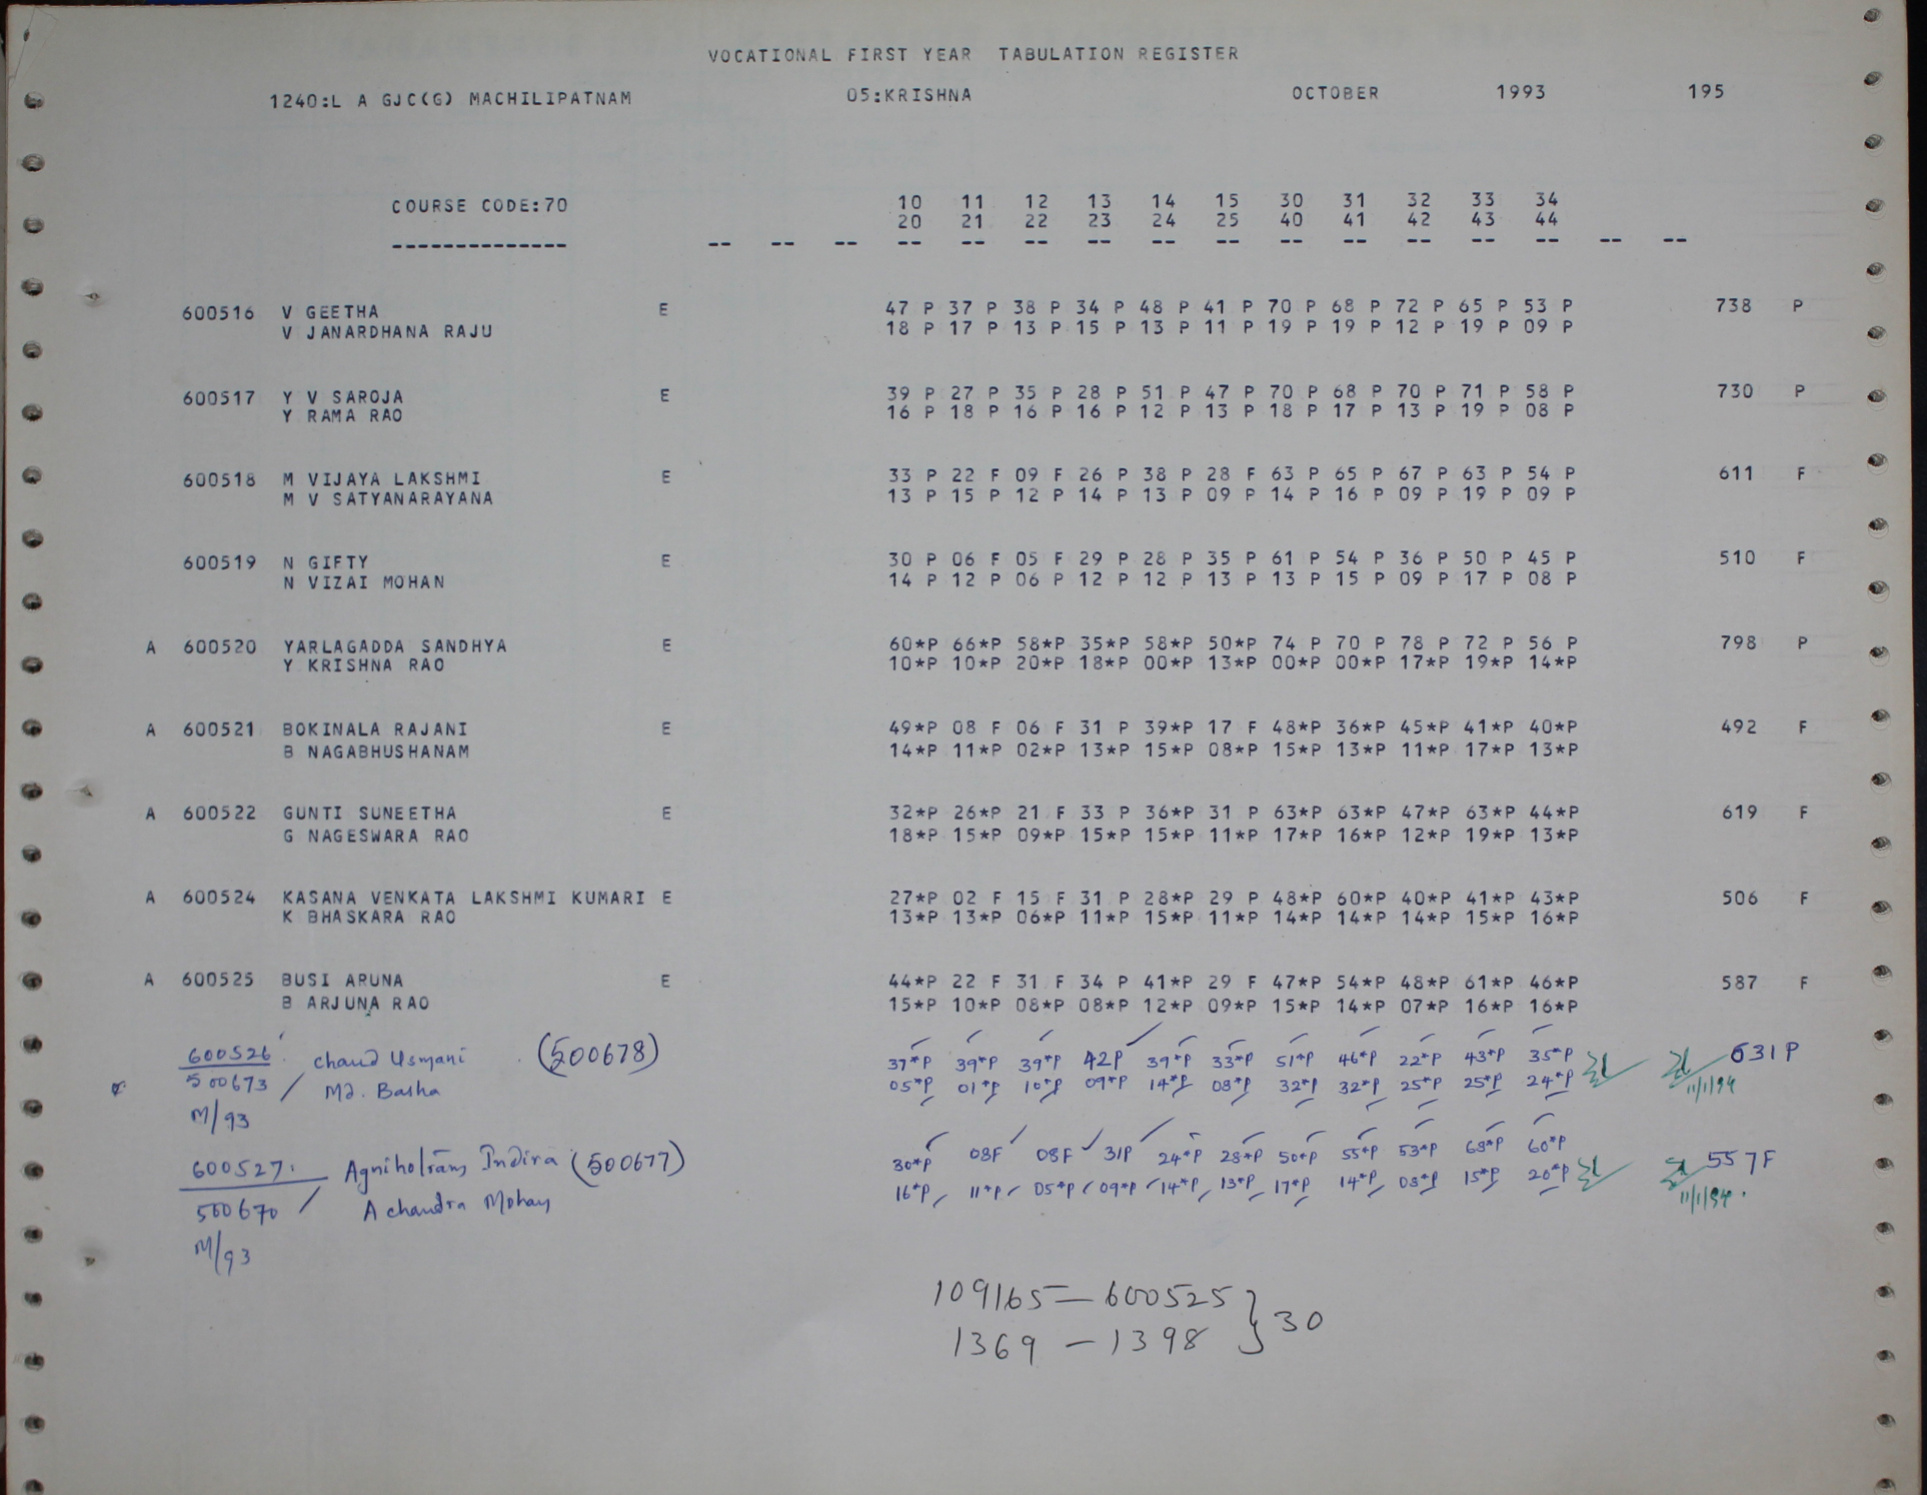 VOCATIONAL FIRST YEAR TABULATION REGISTER
1240:L A GJC(G) MACHILIPATNAM 05:KRISHNA OCTOBER 1993 195
COURSE CODE:70 10 11 12 13 14 15 30 31 32 33 34
20 21 22 23 24 25 40 41 42 43 44
-------------- -- -- -- -- -- -- -- -- -- -- -- -- -- -- -- --
600516 V GEETHA E 47 P 37 P 38 P 34 P 48 P 41 P 70 P 68 P 72 P 65 P 53 P 738 P
V JANARDHANA RAJU 18 P 17 P 13 P 15 P 13 P 11 P 19 P 19 P 12 P 19 P 09 P
600517 Y V SAROJA E 39 P 27 P 35 P 28 P 51 P 47 P 70 P 68 P 70 P 71 P 58 P 730 P
Y RAMA RAO 16 P 18 P 16 P 16 P 12 P 13 P 18 P 17 P 13 P 19 P 08 P
600518 M VIJAYA LAKSHMI E 33 P 22 F 09 F 26 P 38 P 28 F 63 P 65 P 67 P 63 P 54 P 611 F
M V SATYANARAYANA 13 P 15 P 12 P 14 P 13 P 09 P 14 P 16 P 09 P 19 P 09 P
600519 N GIFTY E 30 P 06 F 05 F 29 P 28 P 35 P 61 P 54 P 36 P 50 P 45 P 510 F
N VIZAI MOHAN 14 P 12 P 06 P 12 P 12 P 13 P 13 P 15 P 09 P 17 P 08 P
A 600520 YARLAGADDA SANDHYA E 60*P 66*P 58*P 35*P 58*P 50*P 74 P 70 P 78 P 72 P 56 P 798 P
Y KRISHNA RAO 10*P 10*P 20*P 18*P 00*P 13*P 00*P 00*P 17*P 19*P 14*P
A 600521 BOKINALA RAJANI E 49*P 08 F 06 F 31 P 39*P 17 F 48*P 36*P 45*P 41*P 40*P 492 F
B NAGABHUSHANAM 14*P 11*P 02*P 13*P 15*P 08*P 15*P 13*P 11*P 17*P 13*P
A 600522 GUNTI SUNEETHA E 32*P 26*P 21 F 33 P 36*P 31 P 63*P 63*P 47*P 63*P 44*P 619 F
G NAGESWARA RAO 18*P 15*P 09*P 15*P 15*P 11*P 17*P 16*P 12*P 19*P 13*P
A 600524 KASANA VENKATA LAKSHMI KUMARI E 27*P 02 F 15 F 31 P 28*P 29 P 48*P 60*P 40*P 41*P 43*P 506 F
K BHASKARA RAO 13*P 13*P 06*P 11*P 15*P 11*P 14*P 14*P 14*P 15*P 16*P
A 600525 BUSI ARUNA E 44*P 22 F 31 F 34 P 41*P 29 F 47*P 54*P 48*P 61*P 46*P 587 F
B ARJUNA RAO 15*P 10*P 08*P 08*P 12*P 09*P 15*P 14*P 07*P 16*P 16*P
600526 chand Usmani (500678) 37*P 39*P 39*P 42P 39*P 33*P 51*P 46*P 22*P 43*P 35*P 631 P
500673 / Md. Basha 05*P 01*P 10*P 09*P 14*P 08*P 32*P 32*P 25*P 25*P 24*P 11/1/94
M/93
600527. Indira (500677) 30*P 08F 08F 31P 24*P 28*P 50*P 55*P 53*P 68*P 60*P 557 F
500670 / A chandra Mohan 16*P 11*P 05*P 09*P 14*P 13*P 17*P 14*P 08*P 15*P 20*P 11/1/94.
M/93
109165 — 600525 } 30
1369 — 1398